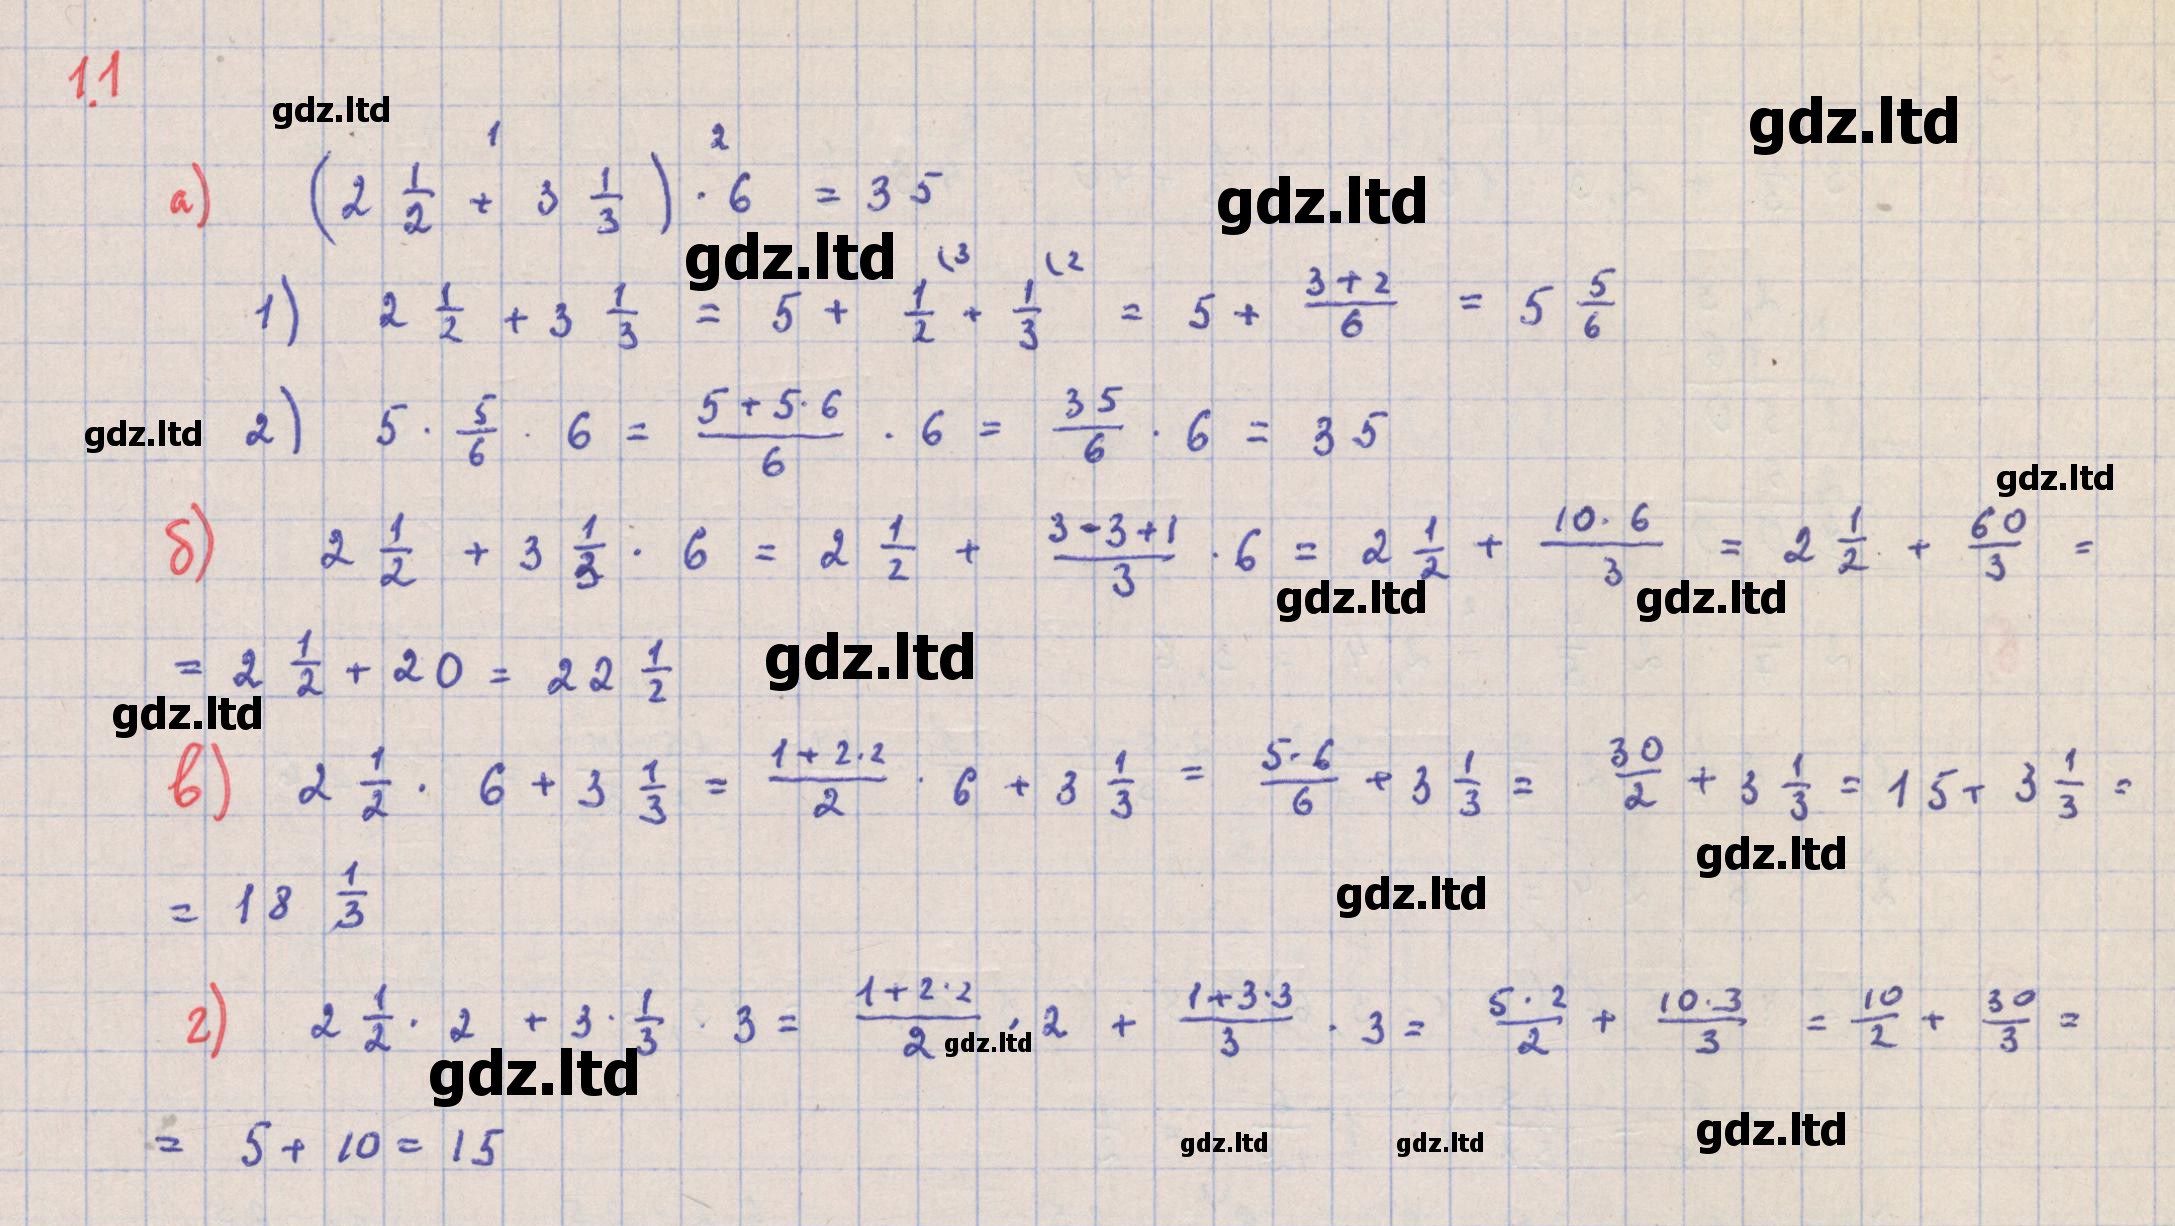 1.1
gdz.ltd
gdz.ltd
1 2
а) (2 1/2 + 3 1/3) · 6 = 35
gdz.ltd
gdz.ltd
1) 2 1/2 + 3 1/3 = 5 + 1/2 (3 + 1/3 (2 = 5 + (3+2)/6 = 5 5/6
gdz.ltd
2) 5 · 5/6 · 6 = (5+5·6)/6 · 6 = 35/6 · 6 = 35
gdz.ltd
б) 2 1/2 + 3 1/3 · 6 = 2 1/2 + (3-3+1)/3 · 6 = 2 1/2 + (10·6)/3 = 2 1/2 + 60/3 =
gdz.ltd gdz.ltd
= 2 1/2 + 20 = 22 1/2
gdz.ltd
gdz.ltd
в) 2 1/2 · 6 + 3 1/3 = (1+2·2)/2 · 6 + 3 1/3 = (5·6)/6 + 3 1/3 = 30/2 + 3 1/3 = 15 + 3 1/3 =
gdz.ltd
gdz.ltd
= 18 1/3
г) 2 1/2 · 2 + 3 · 1/3 · 3 = (1+2·2)/2 · 2 + (1+3·3)/3 · 3 = (5·2)/2 + (10·3)/3 = 10/2 + 30/3 =
gdz.ltd
gdz.ltd
= 5 + 10 = 15
gdz.ltd gdz.ltd gdz.ltd